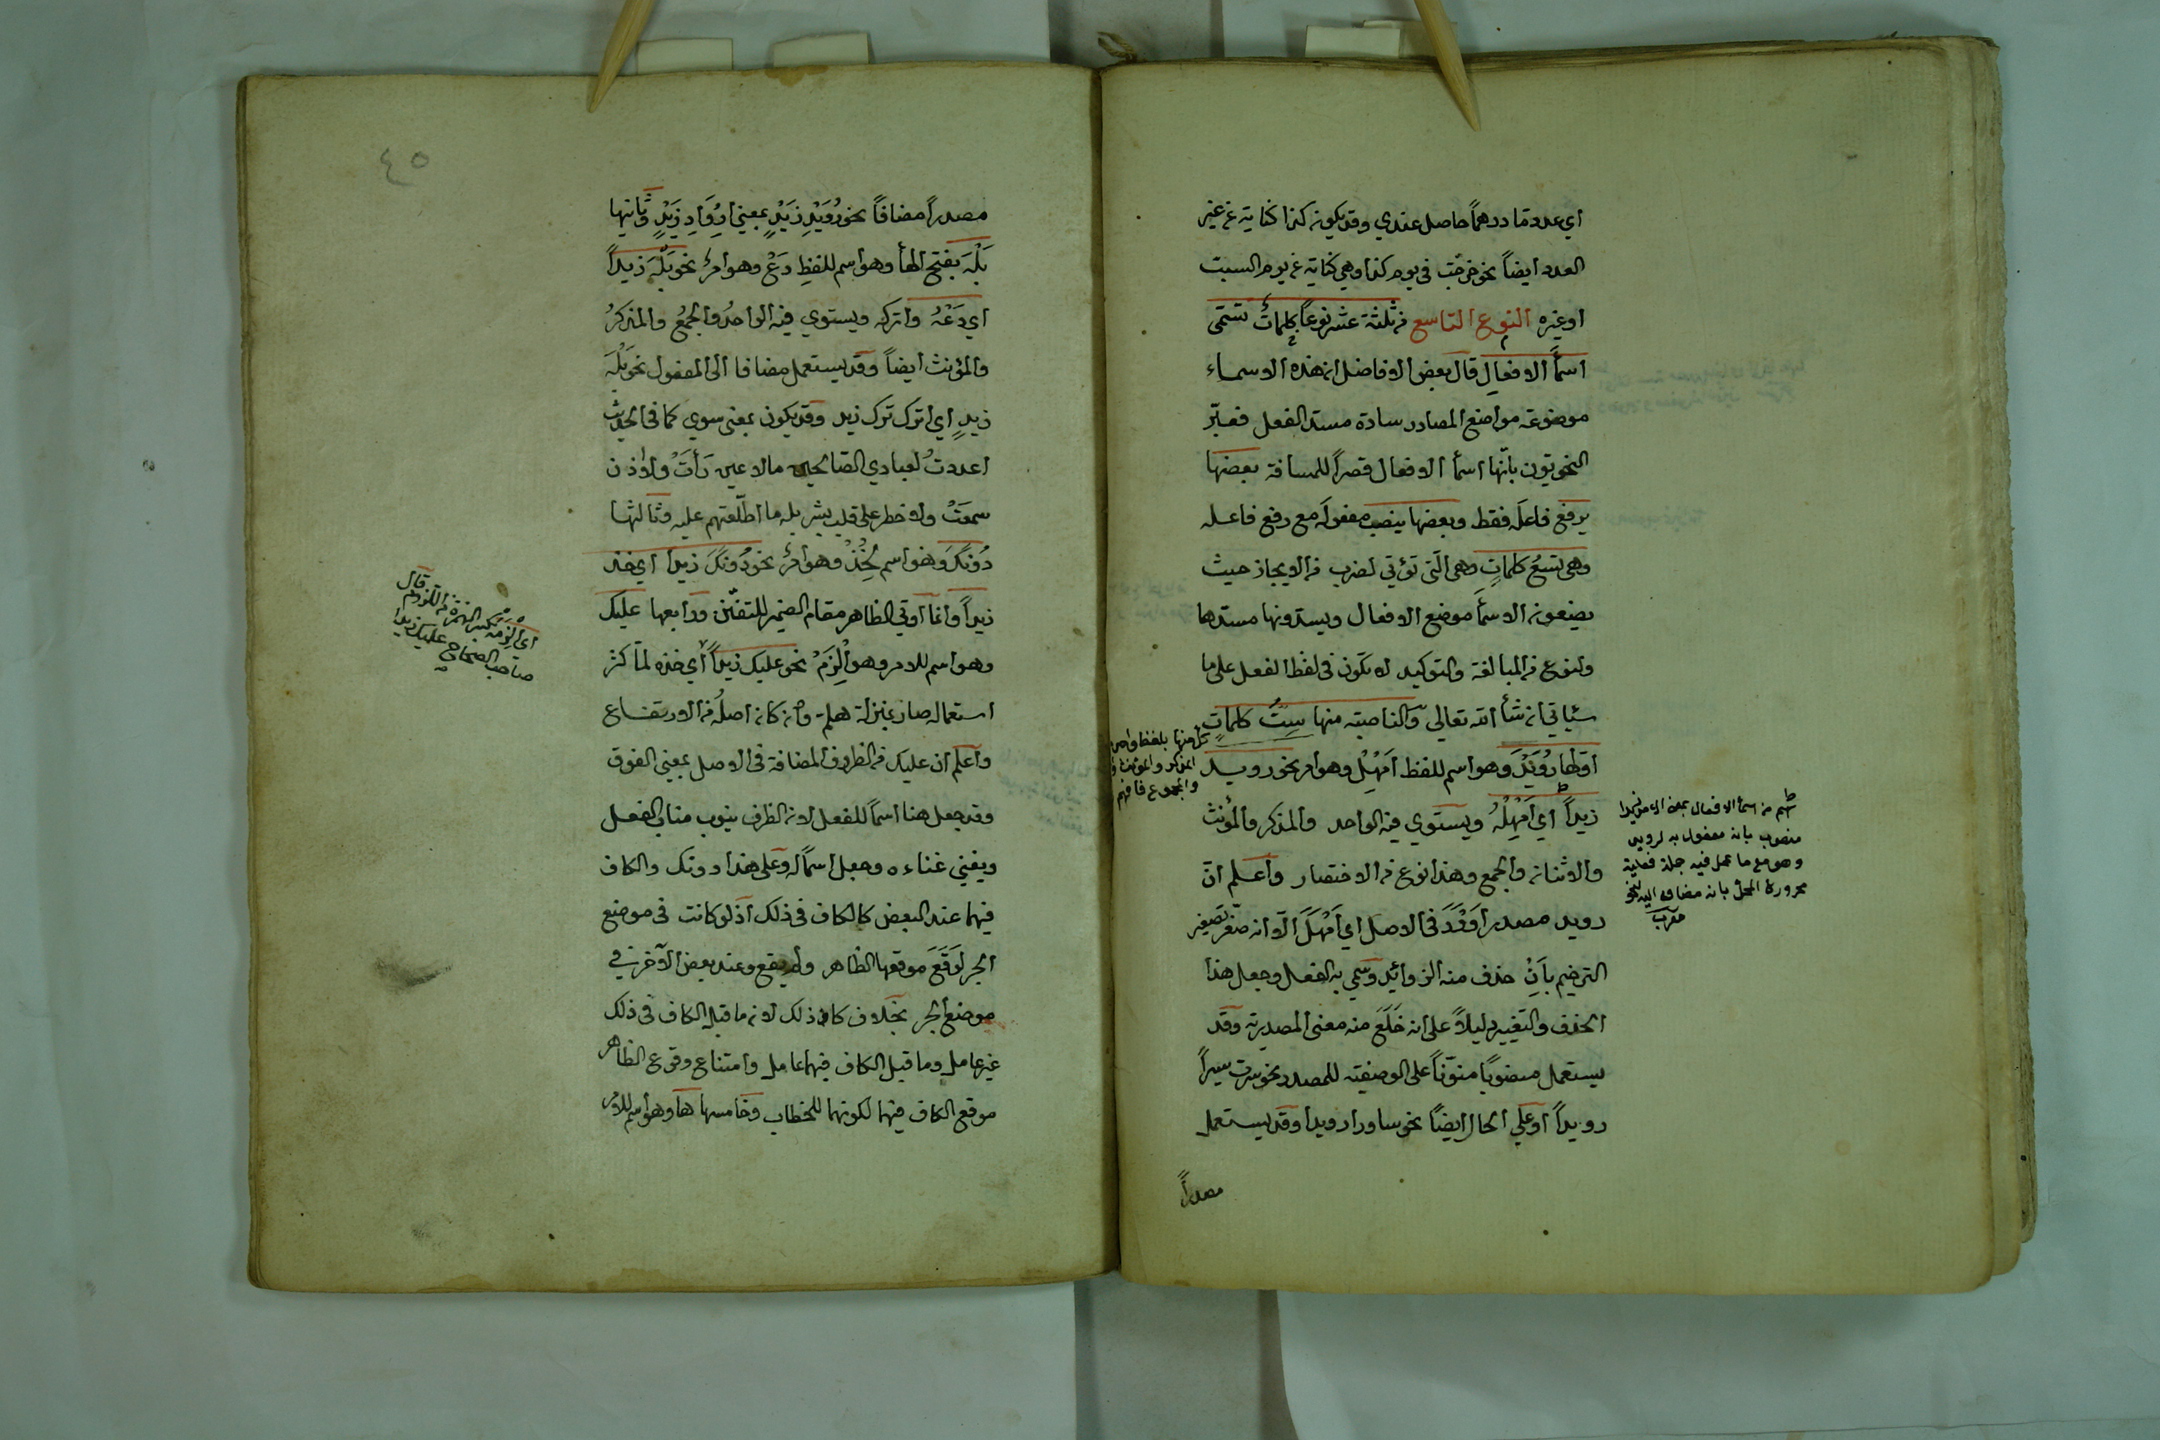 اي عدد ما درهماً حاصل عندي وقد يكون كذا كناية عن غير
العدد ايضاً نحو خرجت في يوم كذا وهي كناية عن يوم السبت
او غيره النوع التاسع من ثلثة عشر نوعاً كلماتٌ تسمّى
اسمأ الافعالِ قال بعض الافاضل ان هذه الاسماء
موضوعة مواضع المصادر سادة مسد الفعل فعبّر
النحويّون بانّها اسمأ الافعال قصراً للمسافة بعضها
يرفع فاعلَه فقط وبعضها ينصب مفعولَه مع رفع فاعله
وهي تسعُ كلماتٍ وهي الّتي تؤتي لضرب من الايجاز حيث
يضعون الاسمأ موضع الافعال ويسدونها مسدها
ولنوع من المبالغة والتوكيد لا تكون في لفظ الفعل على ما
سيأتي ان شأ الله تعالي والناصبة منها سِتُّ كلماتٍ
اوّلها رُوَيْدَ وهو اسم للفظ اَمْهِلْ وهو امر نحو رويد
زيداً اي اَمْهِلْهُ ويستوي فيه الواحد والمذكر والمؤنث
والاثنان والجمع وهذا نوع من الاختصار واعلم انّ
رويد مصدر اَرْوَدَ في الاصل اي اَمْهَلَ الّا انه صغّر تصغير
الترخيم بِاَنْ حذف منه الزوائد وسمي به الفعل وجعل هذا
الحذف والتغيير دليلاً على انه خَلَعَ منه معنى المصدرية وقد
يستعمل منصوباً منوّناً على الوصفية للمصدر نحو سرت سيراً
رويداً او علي الحال ايضاً نحو ساروا رويدا وقد يستعمل
مصدراً
كل منها بلفظ واحد
المذكر والمؤنث و
والمجموع فافهم
اسم من اسمأ الافعال بمعنى الامر زيدا
منصوب بانه مفعول به لرويد
وهو مع ما عمل فيه جملة فعلية
مجرورة المحل بانه مضاف اليه لنحو
معرب
٤٥
مصدراً مضافاً نحو رُوَيْدِ زَيْدٍ بمعني اِرْوَادِ زَيْدٍ وثانيها
بَلْهَ بفتح الهأ وهو اسم للفظِ دَعْ وهو امرٌ نحو بَلْهَ زيداً
اي دَعْهُ واتركه ويستوي فيه الواحدُ والجمعُ والمذكرُ
والمؤنث ايضاً وقد يستعمل مضافا الى المفعول نحو بَلْهَ
زيدٍ اي اترك ترك زيد وقد يكون بمعنى سوي كما في الحديث
اعددتُ لعبادي الصّالحين ما لا عين رَأتْ ولا اذن
سمعَتْ ولا خطر على قلب بشر بله ما اطّلعتهم عليه وثالثها
دُونَكَ وهو اسم لِخُذْ وهو امرٌ نحو دُونَكَ زيداً اي خذ
زيداً وانّما اوتي الظاهر مقام الضمير للتفنّن ورابعها عليك
وهو اسم للامر وهو اِلْزَمْ نحو عليك زيداً اي خذه لمّا كثر
استعماله صار بمنزلة هلم وان كان اصلُه من الارتفاع
واعلم ان عليك من الظروف المضافة في الاصل بمعني الفوق
وقد جعل هنا اسماً للفعل لان الظرف ينوب مناب الفعل
ويغني غناءه وجعل اسماً له وعلى هذا دونك والكاف
فيهما عند البعض كالكاف في ذلك اذ لو كانت في موضع
الجر لَوَقَعَ موقعها الظاهر ولم يقع وعند بعض الآخر في
موضع الجر بخلاف كاف ذلك لان ما قبل الكاف في ذلك
غير عامل وما قبل الكاف فيهما عامل وامتناع وقوع الظاهر
موقع الكاف فيهما لكونهما للخطاب وخامسها ها وهو اسم للامر
اي اِلْزَمْهُ بكسر الهمزة من اللزوم قال
صاحب الصحاح عليك زيدا